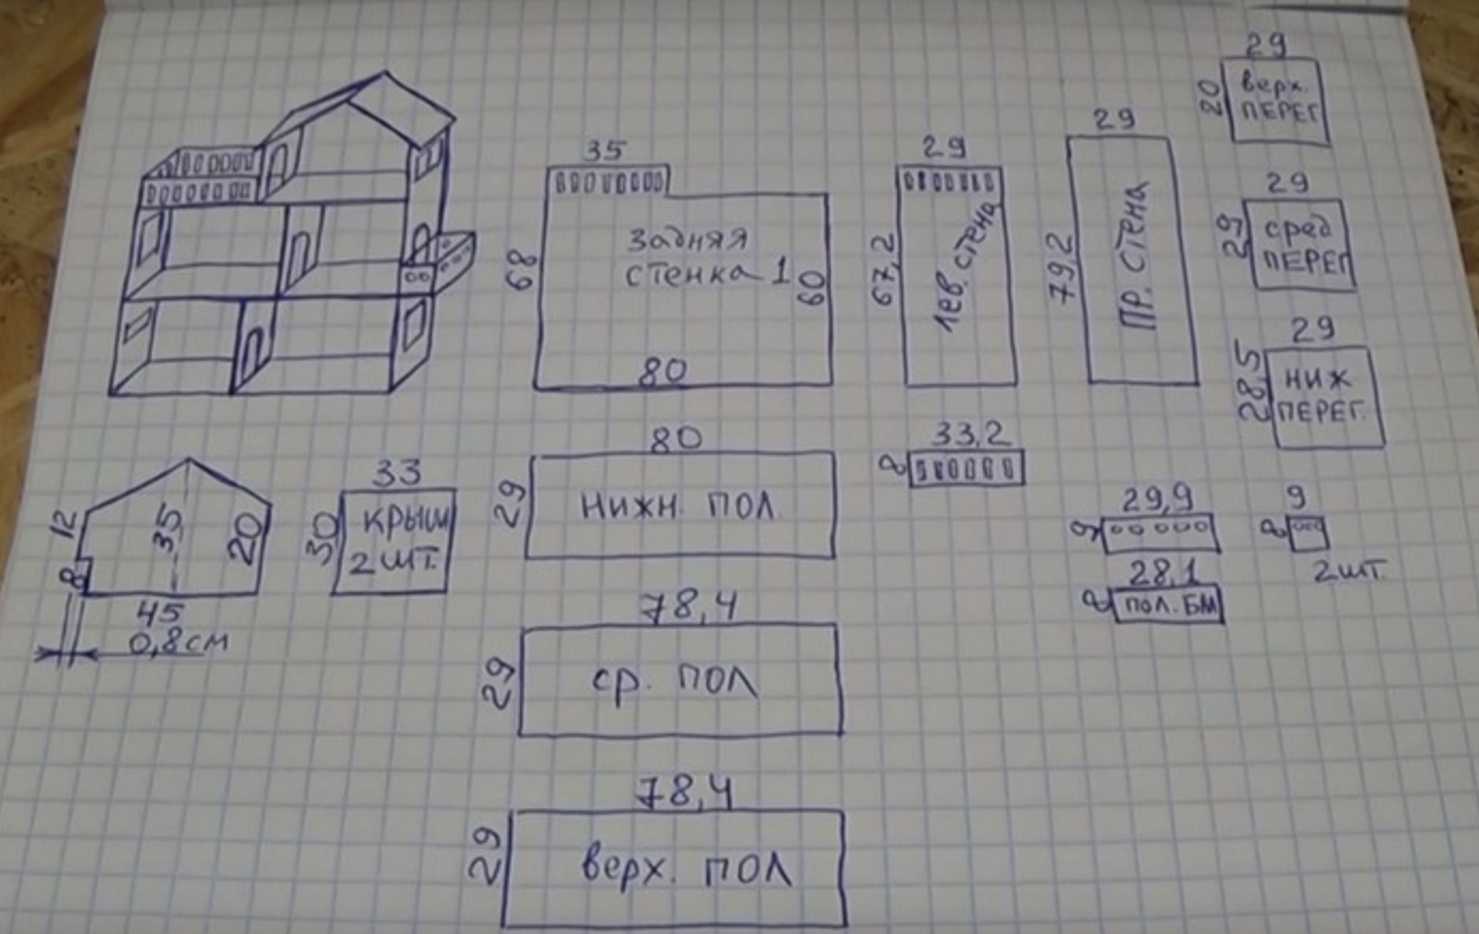 29
20
верх.
ПЕРЕГ
35
68
задняя
стенка 1
60
80
29
67,2
лев. стена
29
79,2
ПР. СТЕНА
29
29
сред
ПЕРЕГ
29
28,5
НИЖ
ПЕРЕГ.
12
8
35
20
45
0,8см
33
30
КРЫШ
2 ШТ.
80
29
НИЖН. ПОЛ
33,2
8
29,9
9
28,1
8
ПОЛ. БМ
9
8
2 шт.
78,4
29
ср. ПОЛ
78,4
29
верх. ПОЛ